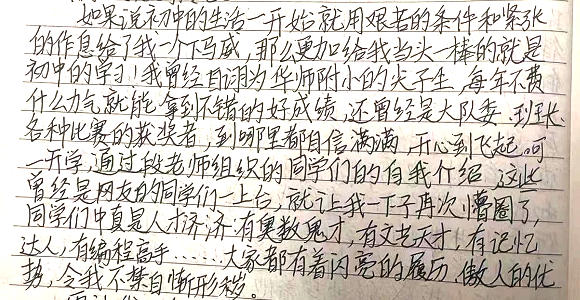 如果说初中的生活一开始就用艰苦的条件和紧张
的作息给了我一个下马威，那么更加给我当头一棒的就是
初中的学习！我曾经自诩为华师附小的尖子生，每年不费
什么力气就能拿到不错的好成绩，还曾经是大队委、班长、
各种比赛的获奖者，到哪里都自信满满，开心到飞起。可
一开学，通过段老师组织的同学们的自我介绍，这些
曾经是网友的同学们一上台，就让我一下子再次懵圈了，
同学们中真是人才济济：有奥数鬼才，有文艺天才，有记忆
达人，有编程高手……大家都有着闪亮的履历，傲人的优
势，令我不禁自惭形秽。